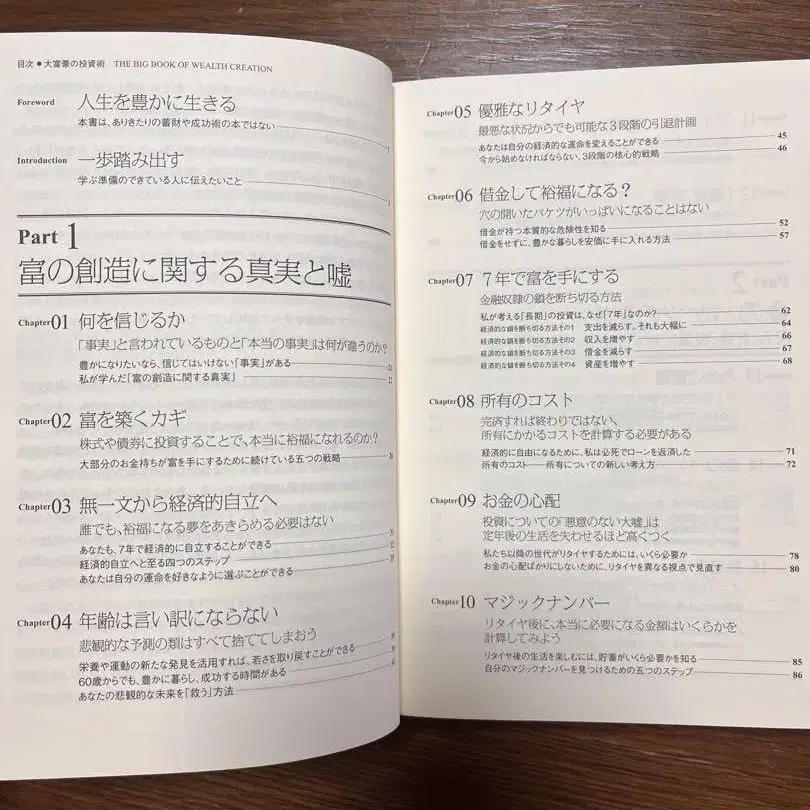 目次 ● 大富豪の投資術 THE BIG BOOK OF WEALTH CREATION
Foreword 人生を豊かに生きる
本書は、ありきたりの蓄財や成功術の本ではない 1
Introduction 一歩踏み出す
学ぶ準備のできている人に伝えたいこと
Part 1
富の創造に関する真実と嘘
Chapter01 何を信じるか
「事実」と言われているものと「本当の事実」は何が違うのか?
豊かになりたいなら、信じてはいけない「事実」がある 21
私が学んだ「富の創造に関する真実」 22
Chapter02 富を築くカギ
株式や債券に投資することで、本当に裕福になれるのか?
大部分のお金持ちが富を手にするために続けている五つの戦略 26
Chapter03 無一文から経済的自立へ
誰でも、裕福になる夢をあきらめる必要はない
あなたも、7年で経済的に自立することができる 31
経済的自立へと至る四つのステップ 32
あなたは自分の運命を好きなように選ぶことができる 35
Chapter04 年齢は言い訳にならない
悲観的な予測の類はすべて捨ててしまおう
栄養や運動の新たな発見を活用すれば、若さを取り戻すことができる
60歳からでも、豊かに暮らし、成功する時間がある
あなたの悲観的な未来を「救う」方法
Chapter05 優雅なリタイヤ
最悪な状況からでも可能な3段階の引退計画
あなたは自分の経済的な運命を変えることができる 45
今から始めなければならない、3段階の核心的戦略 46
Chapter06 借金して裕福になる?
穴の開いたバケツがいっぱいになることはない
借金が持つ本質的な危険性を知る 52
借金をせずに、豊かな暮らしを安価に手に入れる方法 57
Chapter07 7年で富を手にする
金融奴隷の鎖を断ち切る方法
私が考える「長期」の投資は、なぜ「7年」なのか? 62
経済的な鎖を断ち切る方法その1 支出を減らす。それも大幅に 64
経済的な鎖を断ち切る方法その2 収入を増やす 66
経済的な鎖を断ち切る方法その3 借金を減らす 67
経済的な鎖を断ち切る方法その4 資産を増やす 68
Chapter08 所有のコスト
完済すれば終わりではない、
所有にかかるコストを計算する必要がある
経済的に自由になるために、私は必死でローンを返済した 71
所有のコスト――所有についての新しい考え方 72
Chapter09 お金の心配
投資についての「悪意のない大嘘」は
定年後の生活を失わせるほど高くつく
私たち以降の世代がリタイヤするためには、いくら必要か 78
お金の心配ばかりにしないために、リタイヤを異なる視点で見直す 80
Chapter10 マジックナンバー
リタイヤ後に、本当に必要になる金額はいくらかを
計算してみよう
リタイヤ後の生活を楽しむには、貯蓄がいくら必要かを知る 85
自分のマジックナンバーを見つけるための五つのステップ 86